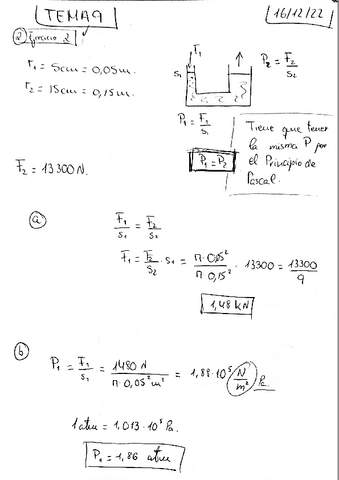 TEMA 9
16/12/22
② Ejercicio 2
r₁ = 5cm = 0,05m.
r₂ = 15cm = 0,15m.
F₁
S₁
P₂ = F₂/S₂
P₁ = F₁/S₁
P₁ = P₂
Tiene que tener
la misma P por
el Principio de
Pascal.
F₂ = 13300 N.
ⓐ
F₁/S₁ = F₂/S₂
F₁ = F₂/S₂ · S₁ = π · 0,05²/π · 0,15² · 13300 = 13300/9
1,48 kN
ⓑ
P₁ = F₁/S₁ = 1480 N/π · 0,05² m² = 1,88 · 10⁵ N/m² Pa.
1 atm = 1,013 · 10⁵ Pa.
P₁ = 1,86 atm.